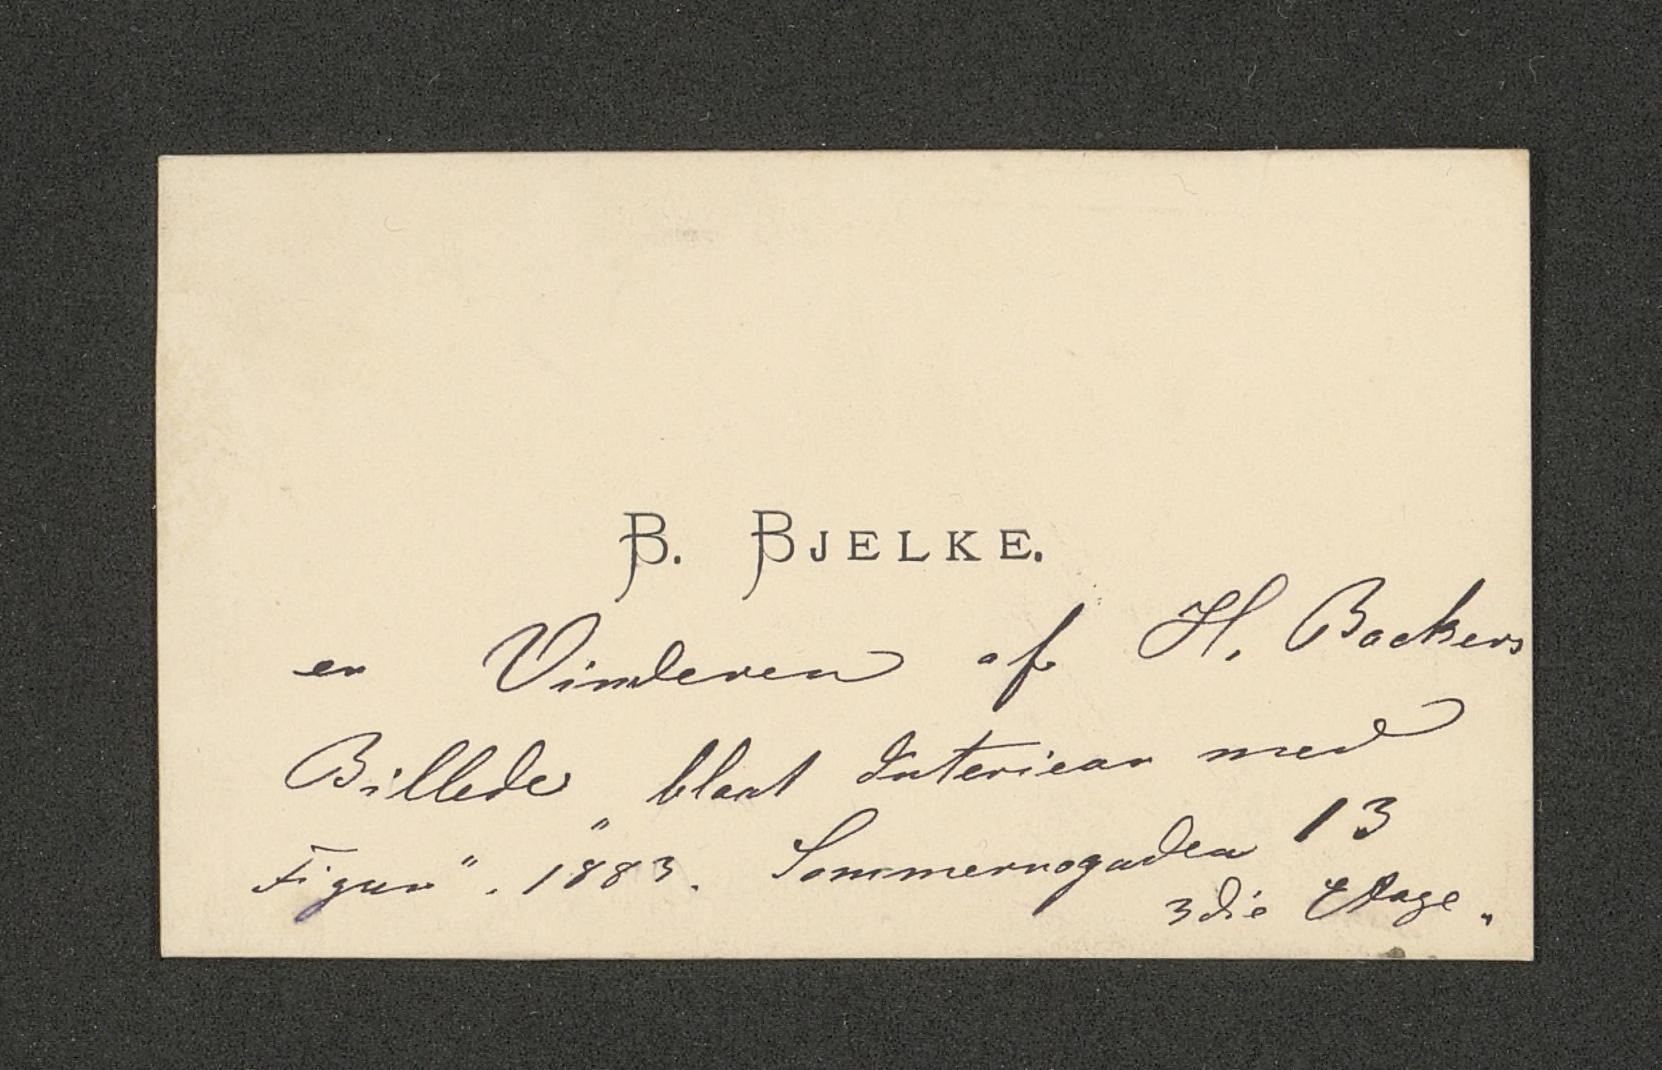 B. BJELKE.
er Vinderen af H. Backers
Billede „blaat Interieur med
Figur". 1883. Sommerrogaden 13
3die Etage.